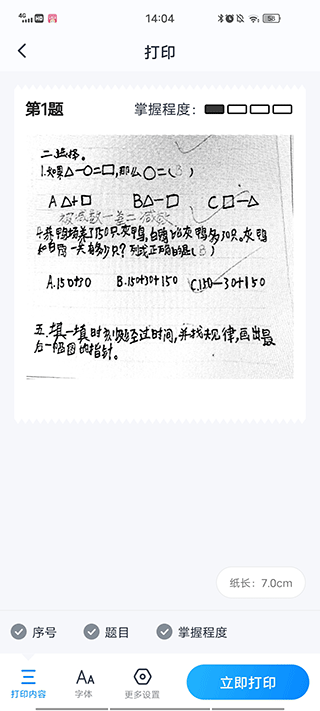 4G HD 14:04 58
打印
第1题 掌握程度：
二.选择。
1.如果△-○=□,那么○=(B)
A △+□ B △-□ C □-△
被减数-差=减数
4.养鸭场养了150只灰鸭,白鸭比灰鸭多30只。灰鸭
和白鸭一共有多少只?列式正确的是(B)
A.150+30 B.150+30+150 C.150-30+150
五.填一填时刻或经过时间,并找规律,画出最
后一幅图的指针。
纸长：7.0cm
序号 题目 掌握程度
打印内容 字体 更多设置 立即打印